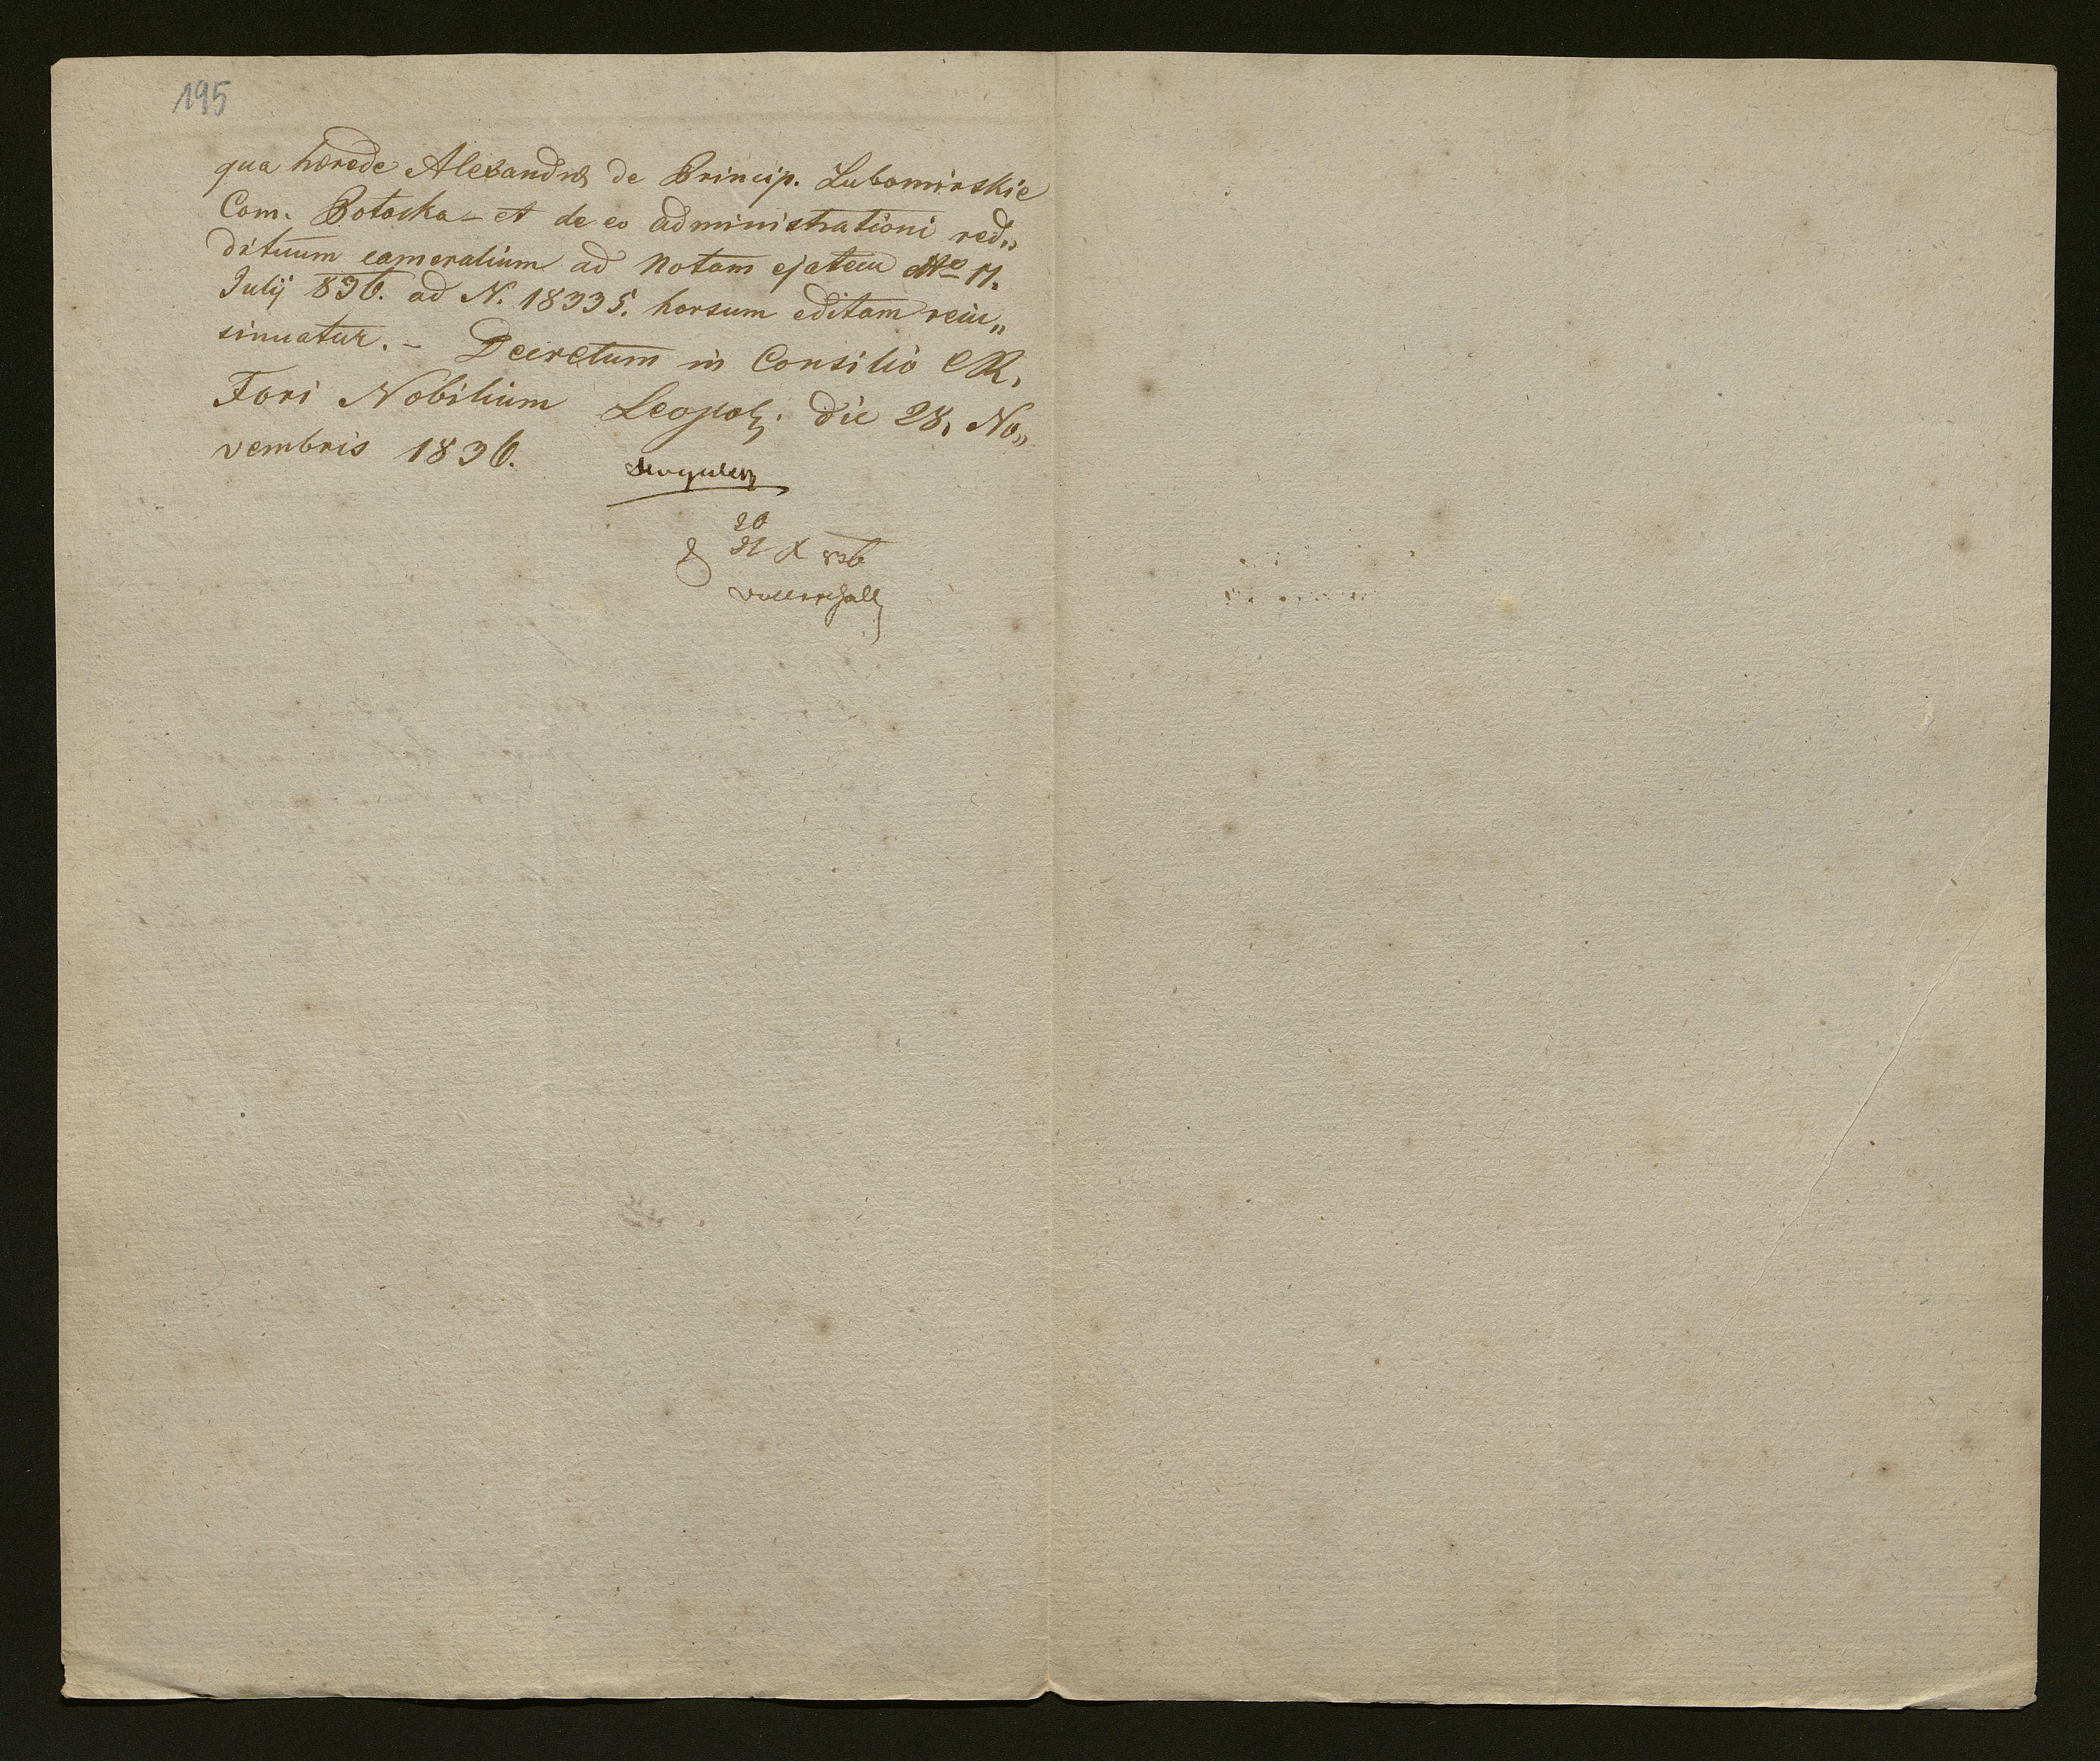 195
qua hærede Alexandræ de Princip. Lubomirskie
Com. Potocka – et de eo administrationi red„
dituum cameralium ad Notam ejatem dtto 17.
Julij 836. ad N. 18335. horsum editam rein„
sinuatur. – Decretum in Consilio CR.
Fori Nobilium Leopol. die 28. No„
vembris 1836.
20
21 X 836